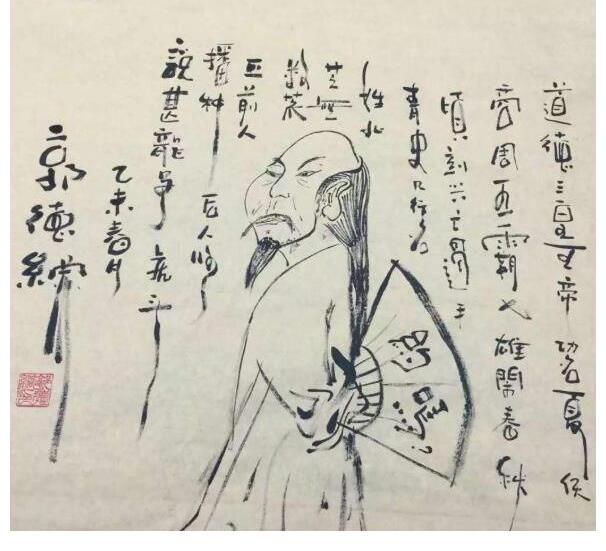 道德三皇五帝功名夏侯
商周五霸七雄閙春秋
頃刻兴亡過手
青史几行名
姓北
芒無
數荒
丘前人
播种后人收
說甚龍爭虎斗
乙未春月
郭德綱